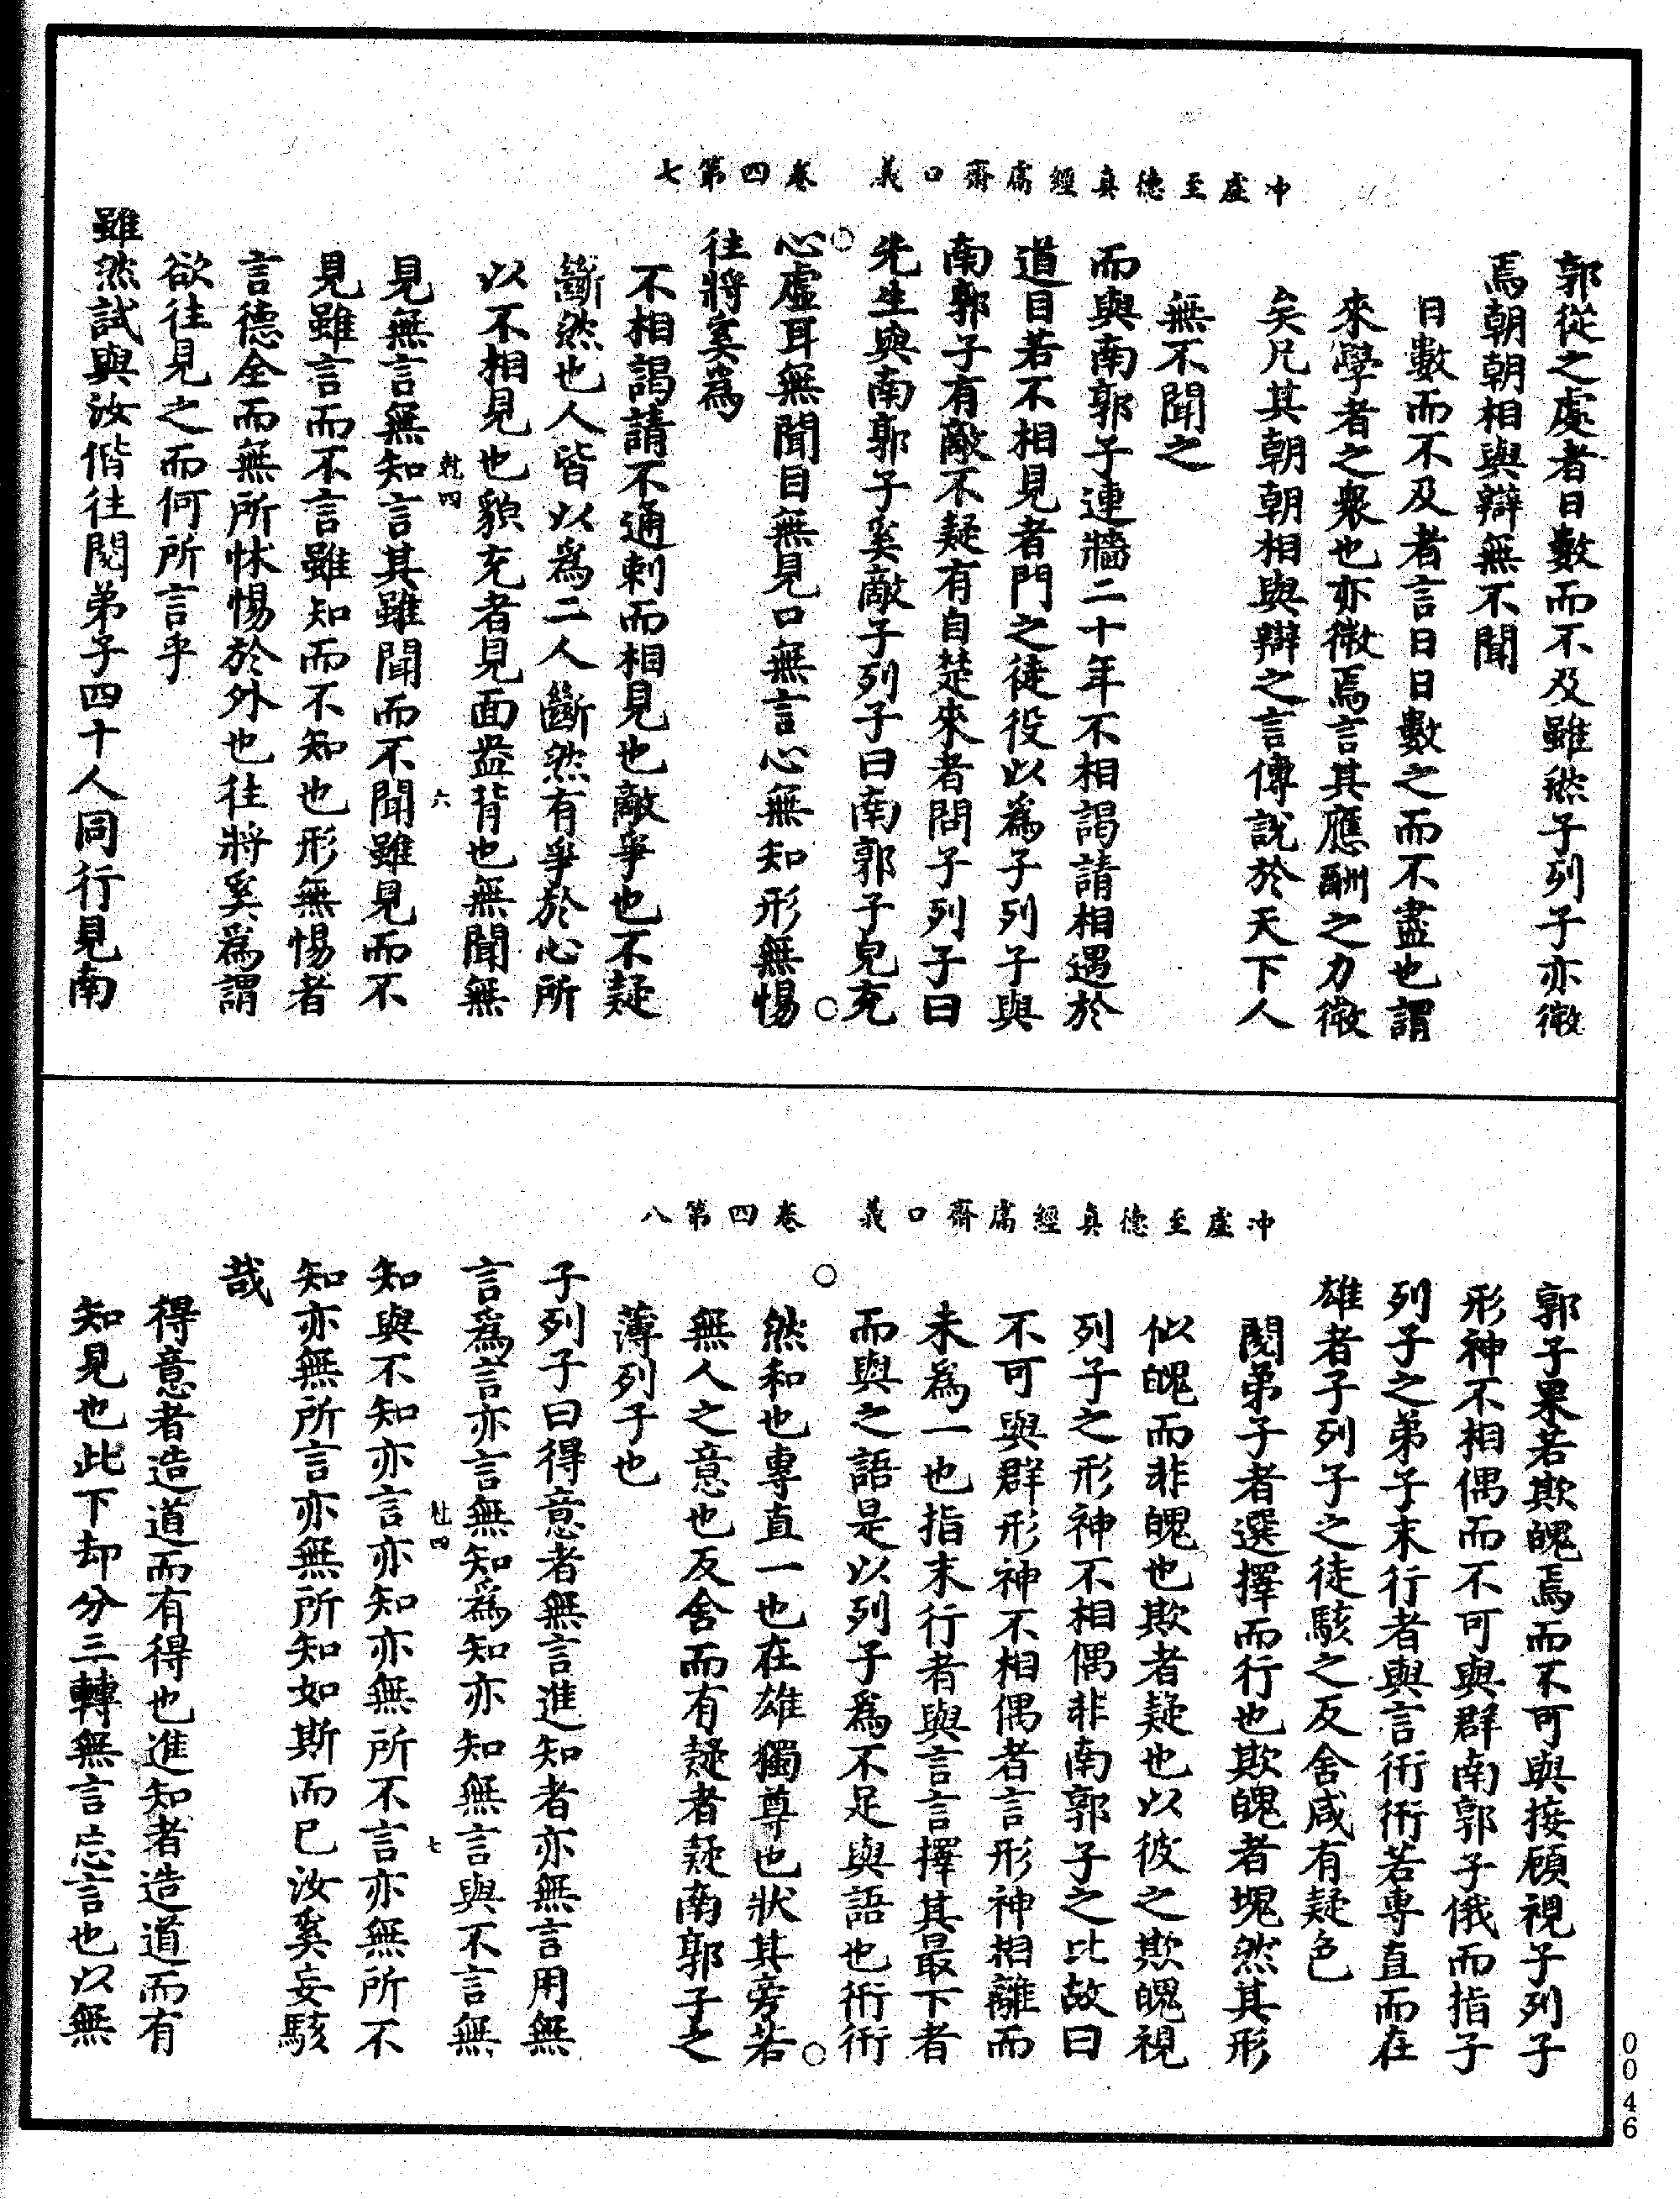 冲虛至德真經鬳齋口義　卷四第七
郭從之處者日數而不及雖然子列子亦微
焉朝朝相與辯無不聞
日數而不及者言日日數之而不盡也謂
來學者之衆也亦微焉言其應酬之力微
矣凡其朝朝相與辯之言傳說於天下人
無不聞之
而與南郭子連牆二十年不相謁請相遇於
道目若不相見者門之徒役以為子列子與
南郭子有敵不疑有自楚來者問子列子曰
先生與南郭子奚敵子列子曰南郭子皃充
心虛耳無聞目無見口無言心無知形無惕
往將奚為
不相謁請不通刺而相見也敵爭也不疑
斷然也人皆以為二人斷然有爭於心所
以不相見也貌充者見面盎背也無聞無
見無言無知言其雖聞而不聞雖見而不
見雖言而不言雖知而不知也形無惕者
言德全而無所怵惕於外也往將奚為謂
欲往見之而何所言乎
雖然試與汝偕往閱弟子四十人同行見南
四
六
冲虛至德真經鬳齋口義　卷四第八
郭子果若欺魄焉而不可與接顧視子列子
形神不相偶而不可與群南郭子俄而指子
列子之弟子末行者與言衎衎若專直而在
雄者子列子之徒駭之反舍咸有疑色
閱弟子者選擇而行也欺魄者塊然其形
似魄而非魄也欺者疑也以彼之欺魄視
列子之形神不相偶非南郭子之比故曰
不可與群形神不相偶者言形神相離而
未為一也指末行者與言言擇其最下者
而與之語是以列子為不足與語也衎衎
然和也專直一也在雄獨尊也狀其旁若
無人之意也反舍而有疑者疑南郭子之
薄列子也
子列子曰得意者無言進知者亦無言用無
言為言亦言無知為知亦知無言與不言無
知與不知亦言亦知亦無所不言亦無所不
知亦無所言亦無所知如斯而已汝奚妄駭
哉
得意者造道而有得也進知者造道而有
知見也此下却分三轉無言忘言也以無
四
七
0046